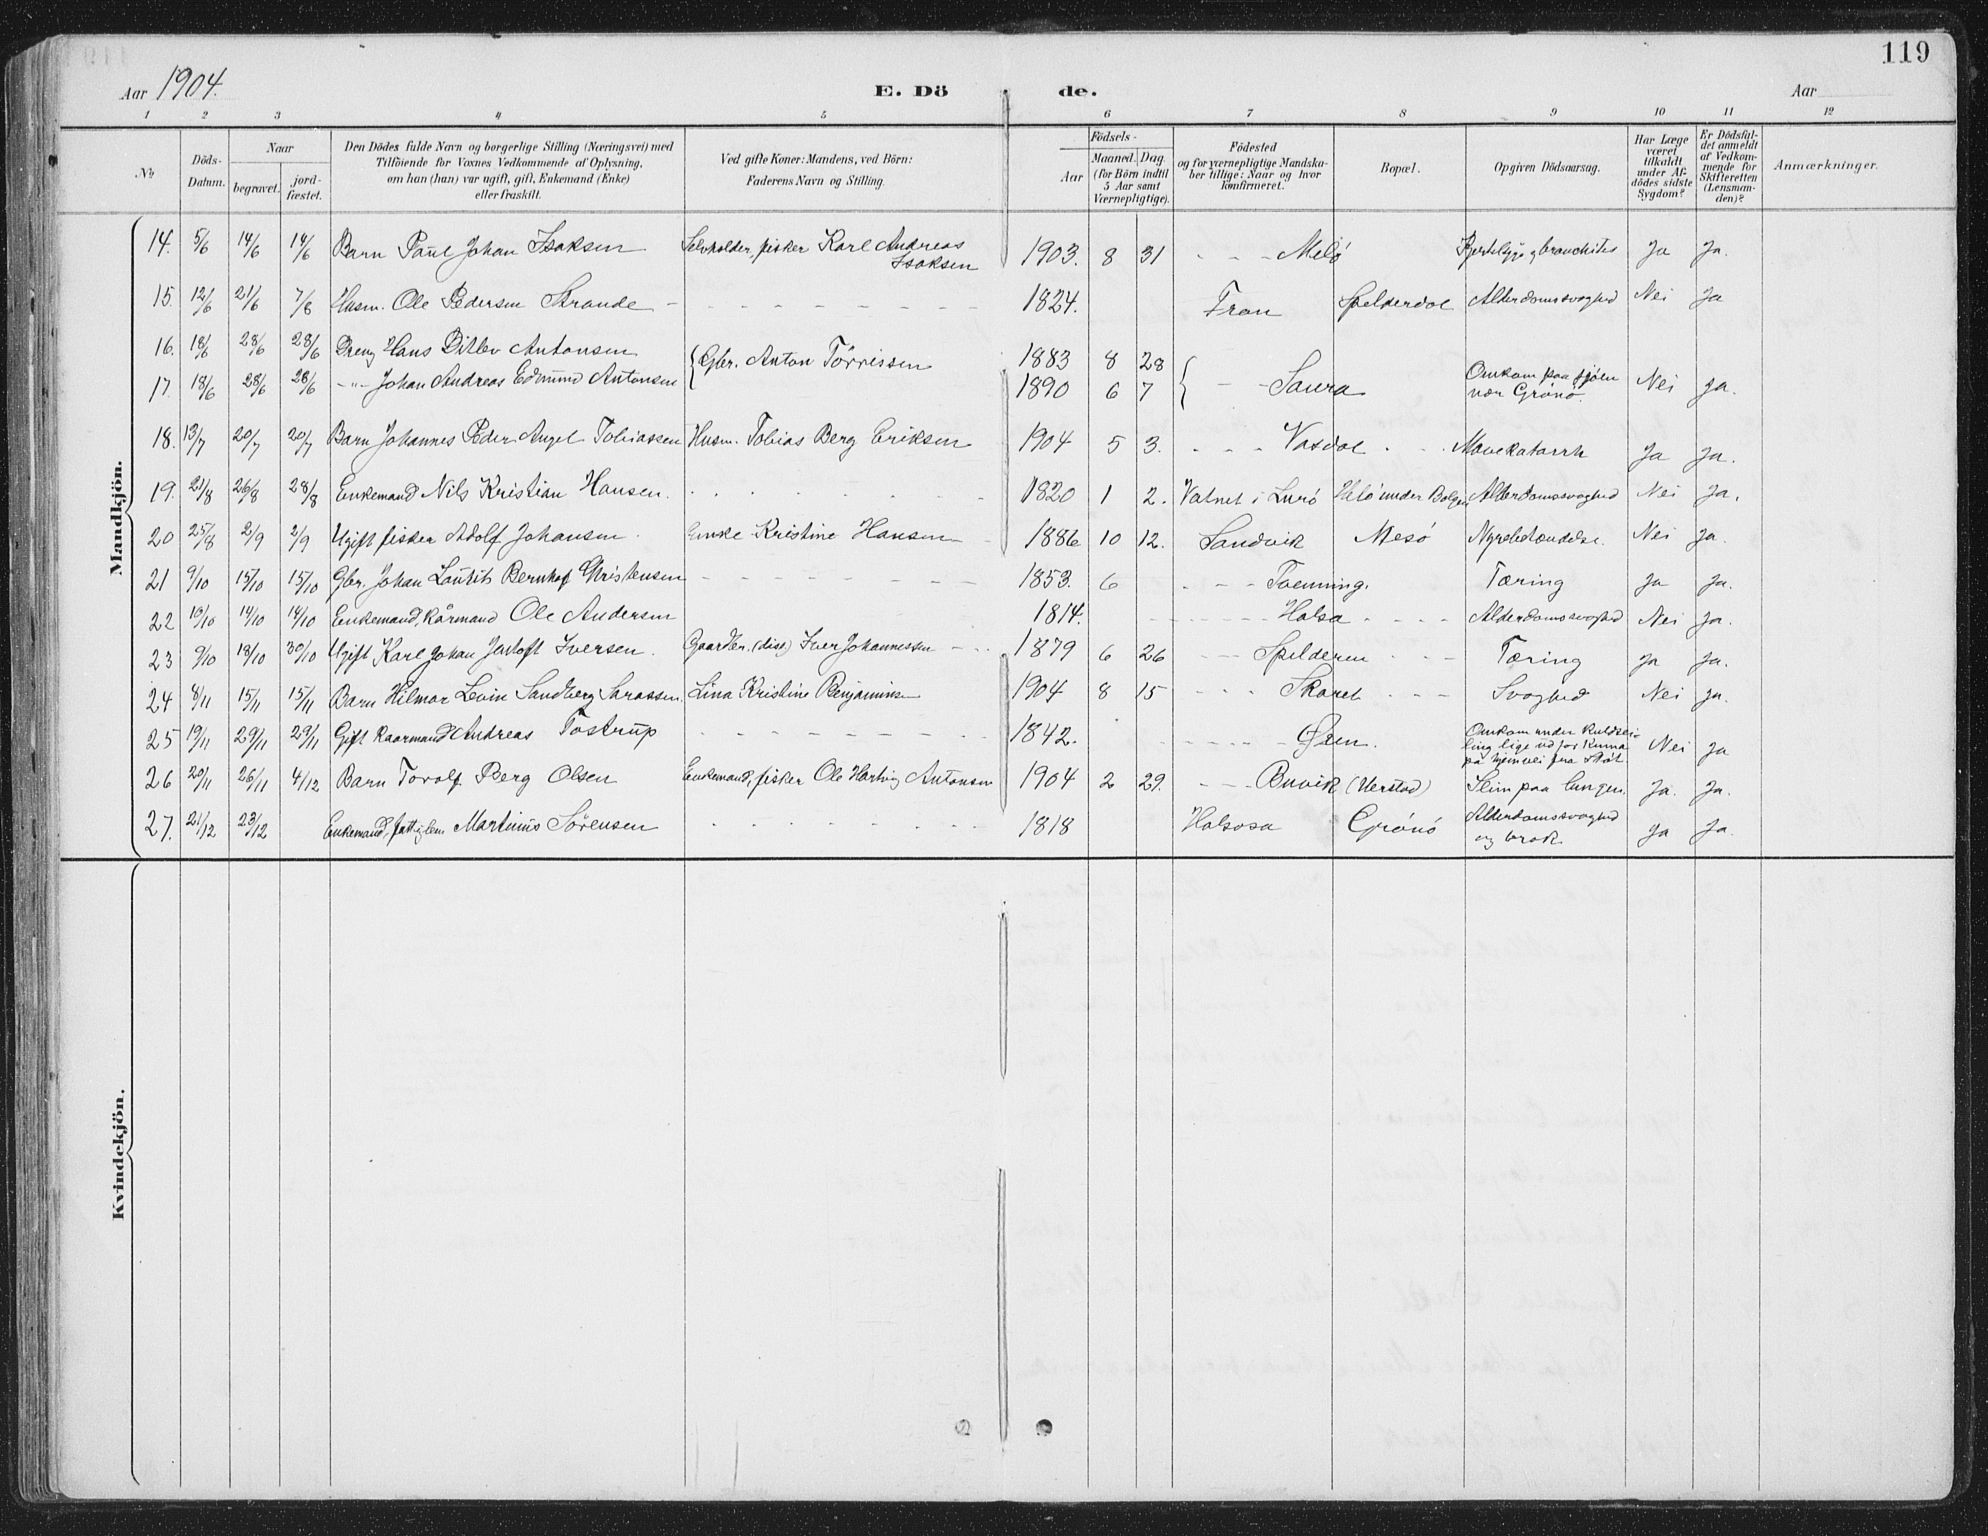 119
Aar 1904.
E. Dö de.
Aar
1 2 3 4 5 6 7 8 9 10 11 12
No
Döds-Datum.
Naar
begravet.
jord-fæstet.
Den Dödes fulde Navn og borgerlige Stilling (Næringsvei) med
Tilföiende for Voxnes Vedkommende af Oplysning,
om han (hun) var ugift, gift, Enkemand (Enke)
eller fraskilt.
Ved gifte Koner: Mandens, ved Börn:
Faderens Navn og Stilling.
Födsels-
Aar
Maaned. Dag.
(for Börn indtil
5 Aar samt
Værnepligtige).
Födested
og for værnepligtige Mandska-
ber tillige: Naar og hvor
konfirmeret.
Bopæl.
Opgiven Dödsaarsag.
Har Læge
været
tilkaldt
under Af-
dödes sidste
Sygdom?
Er Dödsfal-
det anmeldt
af Vedkom-
mende for
Skifteretten
(Lensman-
den)?
Anmærkninger.
Mandkjön.
14. 5/6 14/6 14/6 Barn Paul Johan Isaksen Selvholder, fisker Karl Andreas Isaksen 1903. 8 31 - - - Melö bronchites Ja Ja.
15. 12/6 21/6 7/8 Husm. Ole Pedersen Strande - - - - - 1824. Tran Spelderdal Alderdomssvaghed Nei Ja
16. 18/6 28/6 28/6 Dreng Hans Ditlev Antonsen { Gbr. Anton Törrissen 1883 8 28 { - - Saura Omkom paa sjöen
17. 18/6 28/6 28/6 - " - Johan Andreas Edmund Antonsen 1890 6 7 nær Grönö. Nei Ja.
18. 13/7 20/7 20/7 Barn Johannes Peder Angel Tobiassen Husm. Tobias Berg Eriksen 1904 5 3. - - - Vasdal - - Mavekatarrh Ja Ja.
19. 21/8 26/8 28/8 Enkemand Nils Kristian Hansen. - - - - - 1820 1 2. Vatnet i Lurö under Bolgen Alderdomssvaghed Nei Ja.
20 25/8 2/9 2/9 Ugift fisker Adolf Johansen. Enke Kristine Hansen 1886 10 12. Sandvik Mesö Nyrebetændelse. Nei Ja.
21 9/10 15/10 15/10 Gbr. Johan Lauritz Bernhof Christensen - - - - - 1853. 6 - - - Tæring Ja Ja.
22 10/10 14/10 14/10 Enkemand, kårmand Ole Andersen 1814. - - - - Halsa - - - - Alderdomssvaghed Nei Ja.
23 9/10 18/10 30/10 Ugift Karl Johan Jentoft Iversen. Gaardbr. (död) Iver Johannessen - - 1879 6 26 - - - Spilderen - - - Tæring Ja Ja.
24 8/11 15/11 15/11 Barn Hilmar Levin Sandberg Lina Kristine Benjaminsen 1904 8 15 - - - Skaret - - - Svaghed Nei Ja.
25 19/11 29/11 29/11 Gift kaarmand Andreas Tostrup - - - - - 1842. - - - - Ören. Omkom under kuldsei-
ling lige ud for Kunna
på hjemvei fra Stöt. Nei Ja
26 20/11 26/11 4/12 Barn Torolf Berg Olsen Enkemand, fisker Ole Hartvig Antonsen 1904 2 29. - - - Buvik (Verstad) Slim paa lungen. Ja. Ja.
27. 21/12 23/12 Enkemand, fattiglem Martinus Sörensen - - - - - 1818 Halsosa Grönö Alderdomssvaghed
og brok Ja Ja.
Kvindekjön.